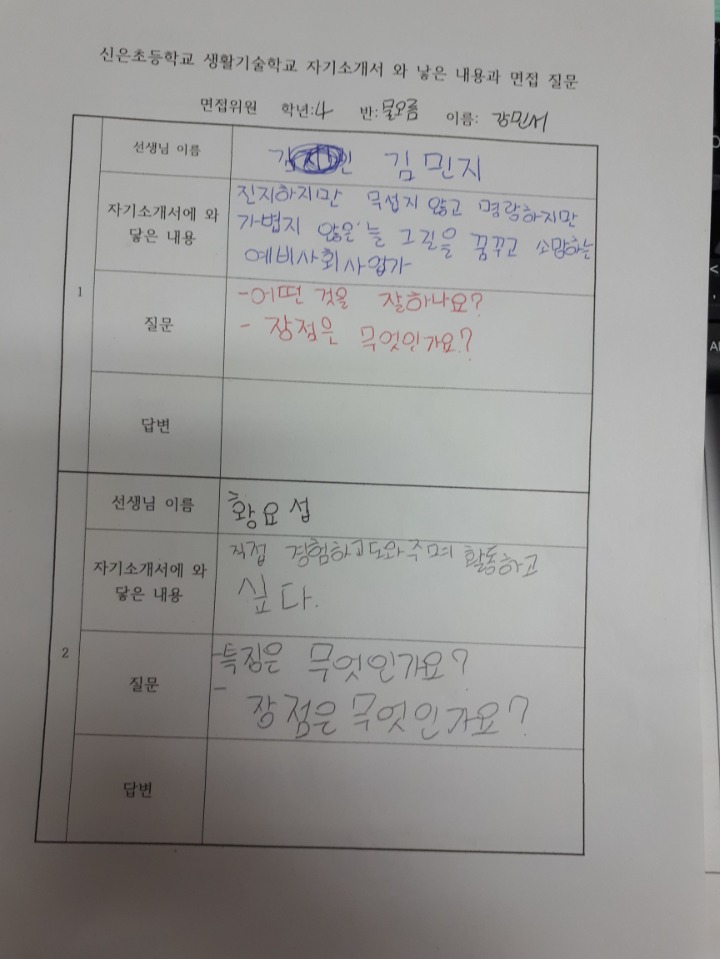 신은초등학교 생활기술학교 자기소개서 와 낳은 내용과 면접 질문
면접위원 학년:4 반:물오름 이름: 강민서
선생님 이름 김민지
자기소개서에 와 닿은 내용
진지하지만 무섭지 않고 명랑하지만
가볍지 않은 늘 그길을 꿈꾸고 소망하는
예비사회사업가
1
질문
-어떤 것을 잘하나요?
- 장점은 무엇인가요?
답변
선생님 이름 황요섭
자기소개서에 와
닿은 내용
직접 경험하고도와주며 활동하고
싶다.
2
질문
-특징은 무엇인가요?
- 장점은 무엇인가요?
답변